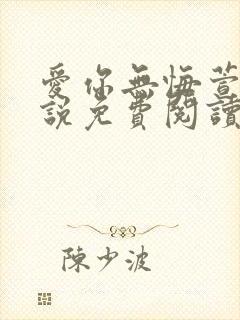 愛你無悔萱
說免費閱讀
陳少波